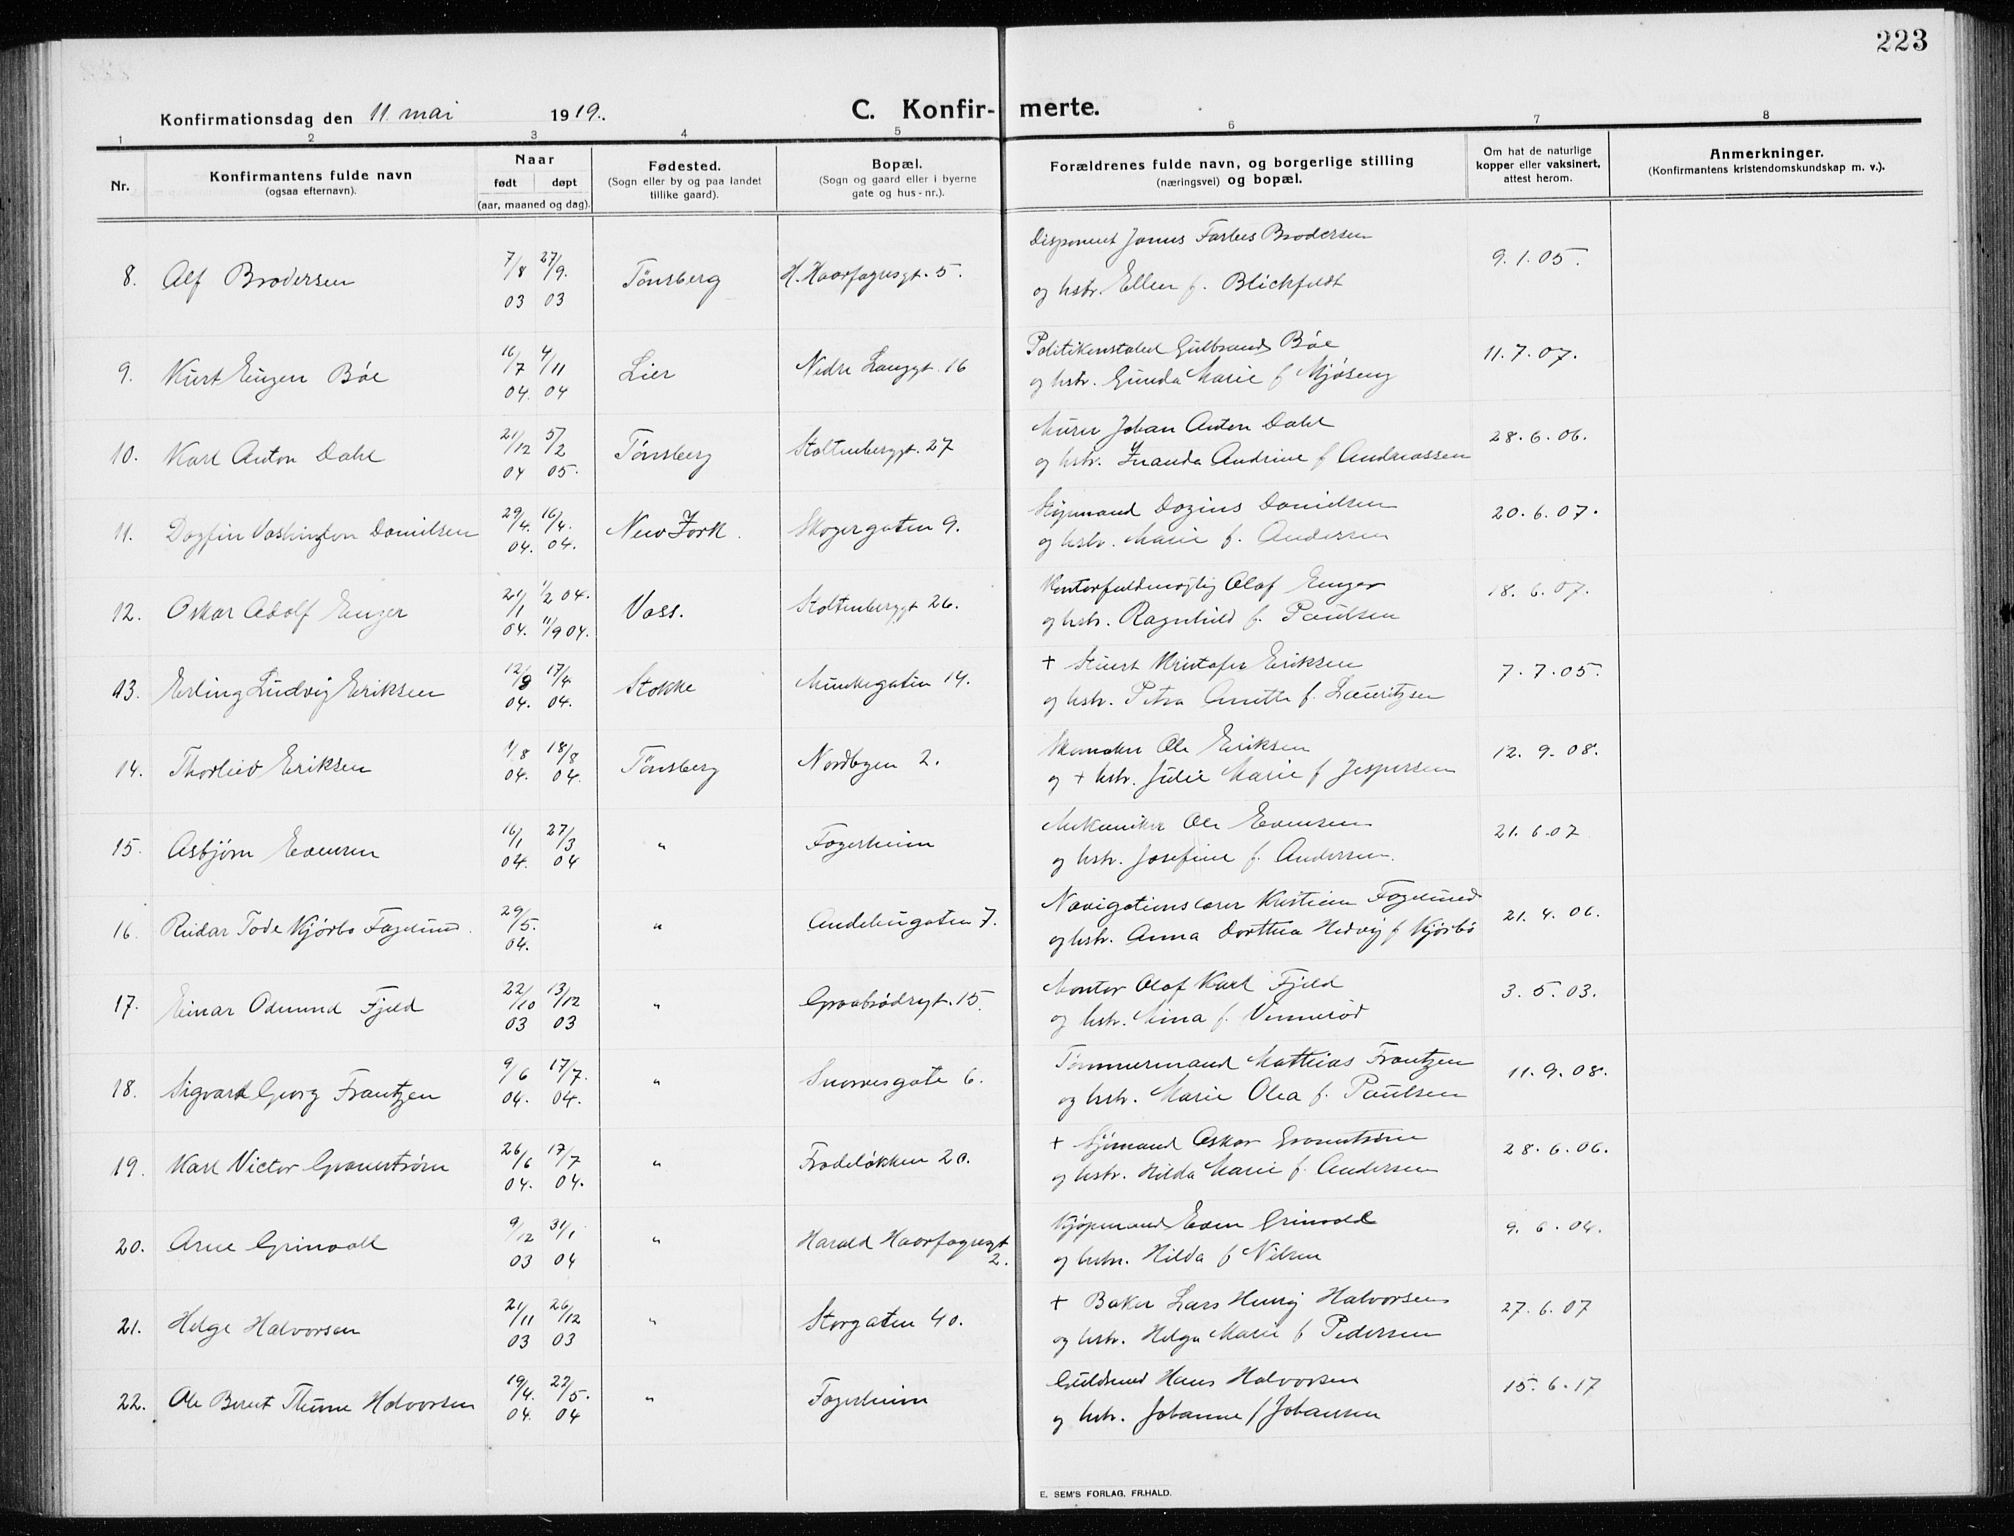 223
Konfirmationsdag den 11. mai 1919.
C. Konfir- merte.
1 2 3 4 5 6 7 8
Nr.
Konfirmantens fulde navn
(ogsaa efternavn).
Naar
født døpt
(aar, maaned og dag).
Fødested.
(Sogn eller by og paa landet
tillike gaard).
Bopæl.
(Sogn og gaard eller i byerne
gate og hus-nr.).
Forældrenes fulde navn, og borgerlige stilling
(næringsvei) og bopæl.
Om hat de naturlige
kopper eller vaksinert,
attest herom.
Anmerkninger.
(Konfirmantens kristendomskundskap m. v.).
8. Alf Brodersen 7/8 03 27/9. 03 Tønsberg H. Haarfagresgt. 5.
Disponent Jonus Forbes Brodersen
og hstr. Ellen f. Blickfeldt
9. 1. 05.
9. Kurt Eugen Bøe 16/7 04. 4/11 04 Lier Nedre Langgt. 16
Politikonstabel Gulbrand Bøe
og hstr. Gunda Marie f Mjøseng
11. 7. 07.
10. Karl Anton Dahl 21/12 04 5/2 05. Tønsberg Stoltenberggt. 27
Murer Johan Anton Dahl
og hstr. Inanda Andrine f Andreassen
28. 6. 06.
11. Dagfin Vashington Danielsen 29/4. 04. 16/4. 04. New York. Skogergaten 9.
Styrmand Dagius Danielsen
og hstr. Marie f. Andersen
20. 6. 07.
12. Oskar Adolf Enger 21/1 04. 1/2 04. 11/9 04. Voss. Stoltenberggt 26.
Kontorfuldmægtig Olaf Enger
og hstr. Ragnhild f. Paulsen
18. 6. 07.
13. Erling Ludvig Eriksen 04. 17/4 04. Stokke Munkegaten 14.
+ Stuert Kristofer Eriksen
og hstr. Petra Anette f. Lauritzen
7. 7. 05.
14. Thorleiv Eriksen 1/8 04. 18/8 04. Tønsberg Nordbyen 2.
Skomaker Ole Eriksen
og + hstr. Julie Marie f Jespersen
12. 9. 08.
15. Asbjørn Evensen 16/1 04. 27/3 04 " Fagerheim
Mekaniker Ole Evensen
og hstr. Josefine f. Andersen.
21. 6. 07
16. Reidar Tode Kjørbo Fagerlund. 29/5. 04. " Andebugaten 7.
Navigationslærer Kristian Fagerlund
og hstr. Anna Dorthea Hedvig f Kjørbo
21. 4. 06.
17. Einar Odmund Fjeld 22/10 03 13/12 03 " Graabrødregt. 15.
Montør Olaf Karl Fjeld
og hstr. Mina f. Vennerød
3. 5. 03.
18. Sigvard Georg Frantzen 9/6 04. 17/7. 04. " Snorresgate 6.
Tømmermand Mathias Frantzen
og hstr. Marie Olea f. Paulsen
11. 9. 08.
19. Karl Victor Granestrøm 26/6 04. 17/7 04. " Frodeløkken 20.
+ Sjømand Oskar Granestrøm
og hstr. Hilda Marie f. Andersen
28. 6. 06.
20. Arne Grinvold 9/12 03 31/1 04 " Harald Haarfagresgt 2.
Kjøpmand Even Grinvold
og hstr. Hilda f Nilsen
9. 6. 04.
21. Helge Halvorsen 21/11 03 26/12 03 " Storgaten 40.
+ Baker Lars Henrij Halvorsen
og hstr. Helga Marie f Pedersen
27. 6. 07
22. Ole Bernt Thune Halvorsen 19/4. 04. 22/5. 04 " Fagerheim
Guldsmed Hans Halvorsen
og hstr. Johanne f Johansen
15. 6. 17
E. SEM'S FORLAG, FR.HALD.